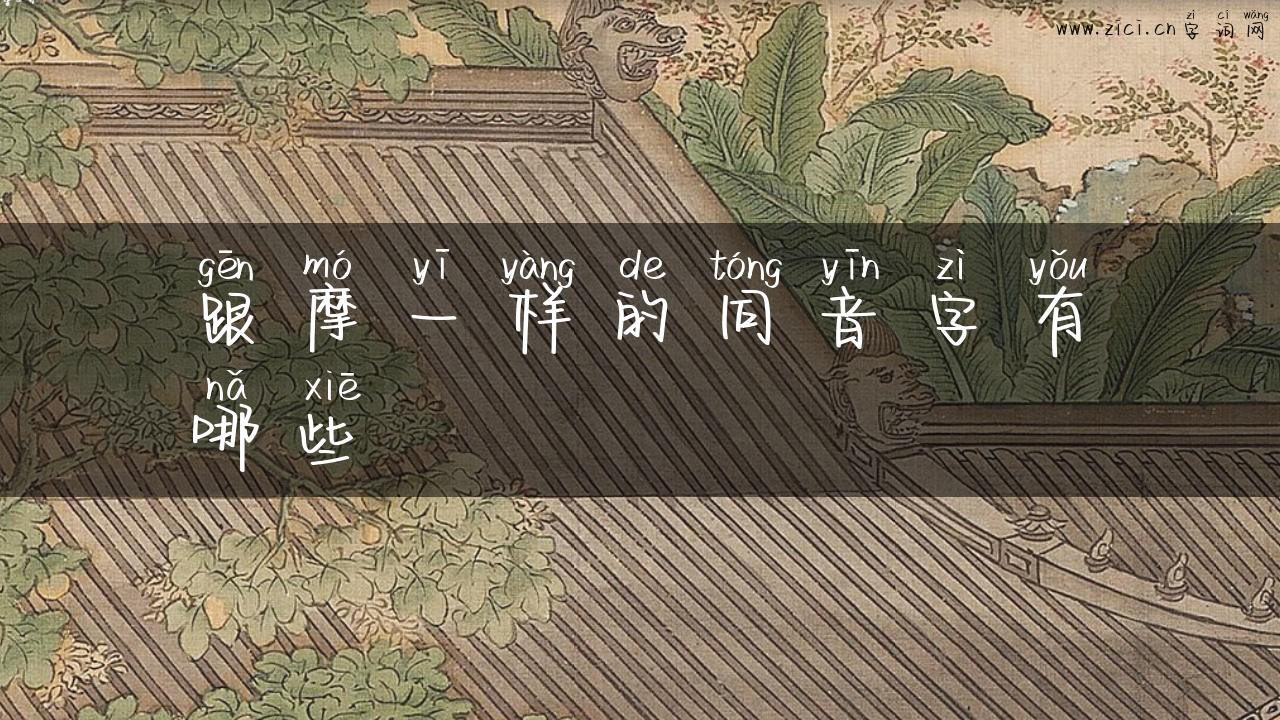 zì cí wǎng
www.zici.cn 字词网
gēn mó yī yàng de tóng yīn zì yǒu
跟摩一样的同音字有
nǎ xiē
哪些